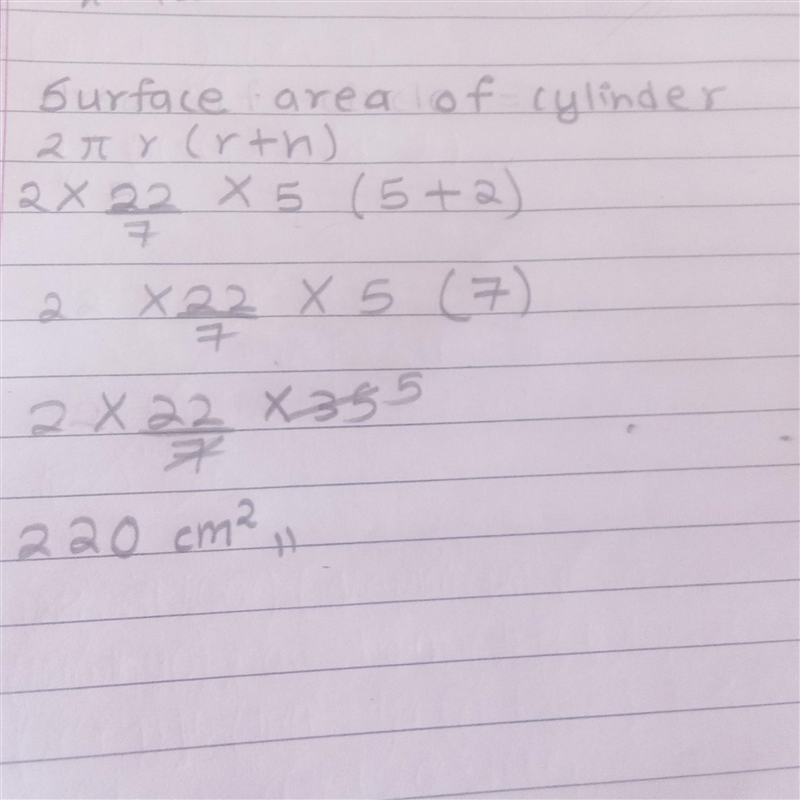 Surface area of cylinder
2 π r (r+h)
2 × 22/7 × 5 (5+2)
2 × 22/7 × 5 (7)
2 × 22/7 × 35 5
220 cm² 〃